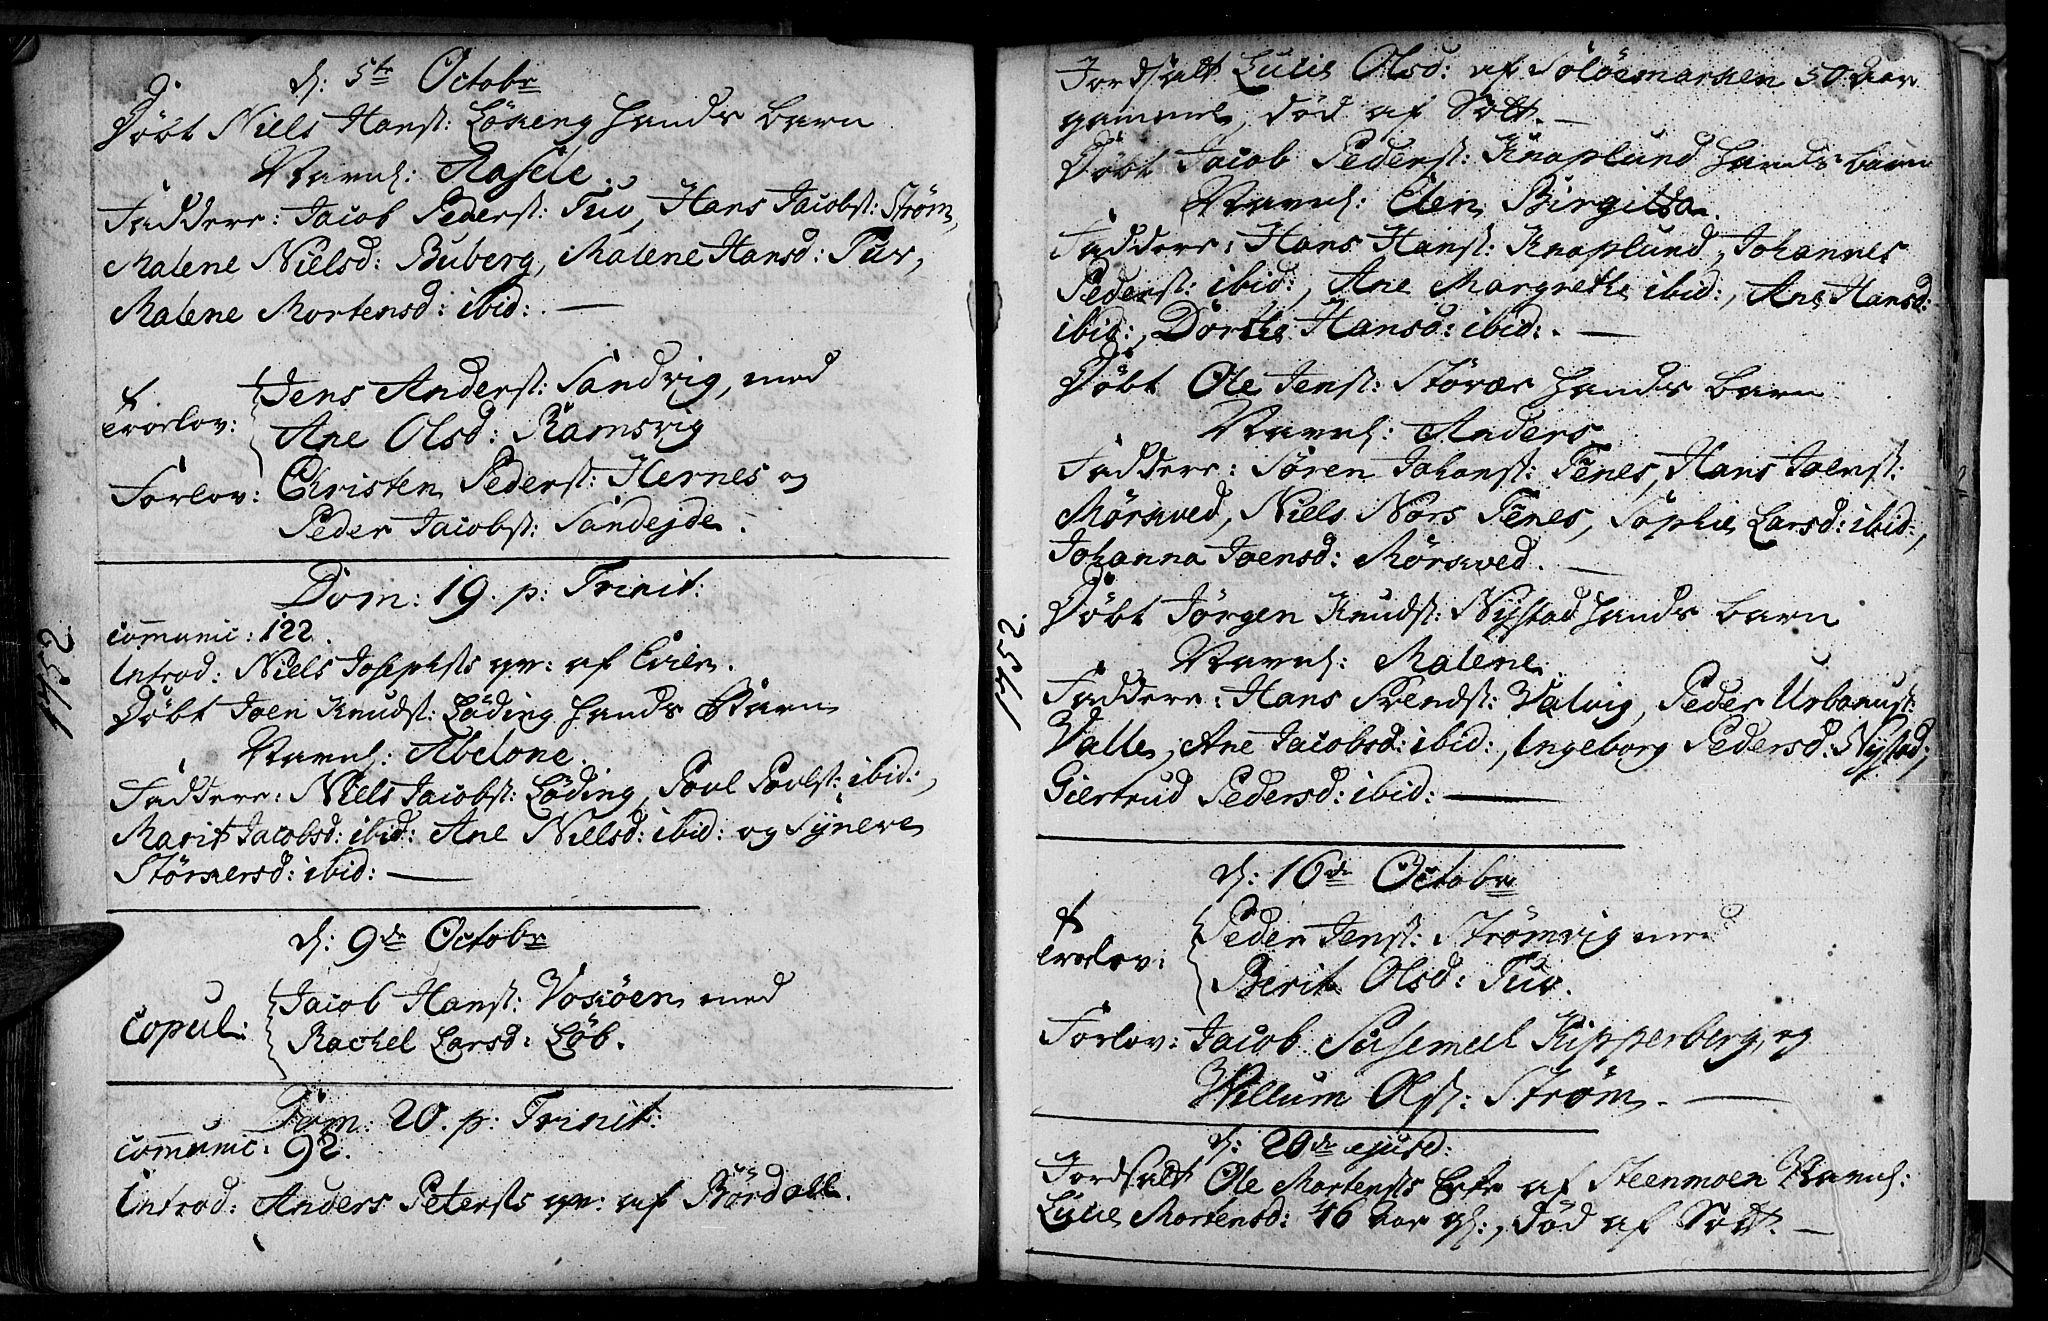 d: 5te Octobr
Döbt Niels Hansß: Löseng hands barn
Navnl: Rasele.
Faddere: Jacob Pedersß: Tuv, Hans Jacobsß: Strøm,
Malene Nielsd: Buberg, Malene Hansd: Tuv,
Malene Mortensd: ibid:
Trolov: Jens Andersß: Sandvig, med
Ane Olsd: Ramsvig
Forlov: Christen Pedersß: Hernes og
Peder Jacobsß: Sandejde.
Dom: 19. p: Trinit:
communic: 122.
Introd: Niels Josephsßs qv: af Evien.
Döbt Joen Knudsß: Löding hands Barn
Navnl: Abelone.
Faddere: Niels Jacobsß: Löding, Povl Povlsß: ibid:,
Marit Jacobsd: ibid: Ane Nielsd: ibid: og Syneve
Störkersd: ibid:
1752
d: 9de Octobr
Copul: Jacob Hansß: Voxöen med
Rachel Larsd: Löb.
Dom: 20. p: Trinit:
communic: 92.
Introd: Anders Petersßs qv: af Bördall.
Jordfalt Lucie Olsd: af Solöemarken 50 aar
gammel, död af Sott.
Döbt Jacob Pedersß: Knaplund hands barn
Navnl: Elen Birgitta.
Faddere: Hans Hansß: Knaplund, Johannes
Pedersß: ibid:, Ane Margrethe ibid:, Ane Hansd:
ibid:, Dorthe Hansd: ibid:.
Döbt Ole Jensß: Störær hands barn
Navnl: Anders
Faddere: Sören Johansß: Fenes, Hans Joensß:
Mörkved, Niels Nors Fenes, Sophie Larsd: ibid:,
Johanna Joensd: Mörkved.
Döbt Jörgen Knudsß: Nystad hands barn
Navnl: Malene
Faddere: Hans Svendsß: Valvig, Peder Urbanusß:
Valle, Ane Jacobsd: ibid:, Ingeborg Pedersd: Nystad,
Giertrud Pedersd: ibid:
1752.
d: 16de Octobr
Trolov: Peder Jensß: Strømvig med
Berit Olsd: Tuv.
Forlov: Jacob Kipperberg, og
Willum Olsß: Strøm.
d: 20de ejusd:
Jordfalt Ole Mortensßs Enke af Steenmoen Navnl:
Lucie Mortensd: 46 aar gl:, död af Sott.